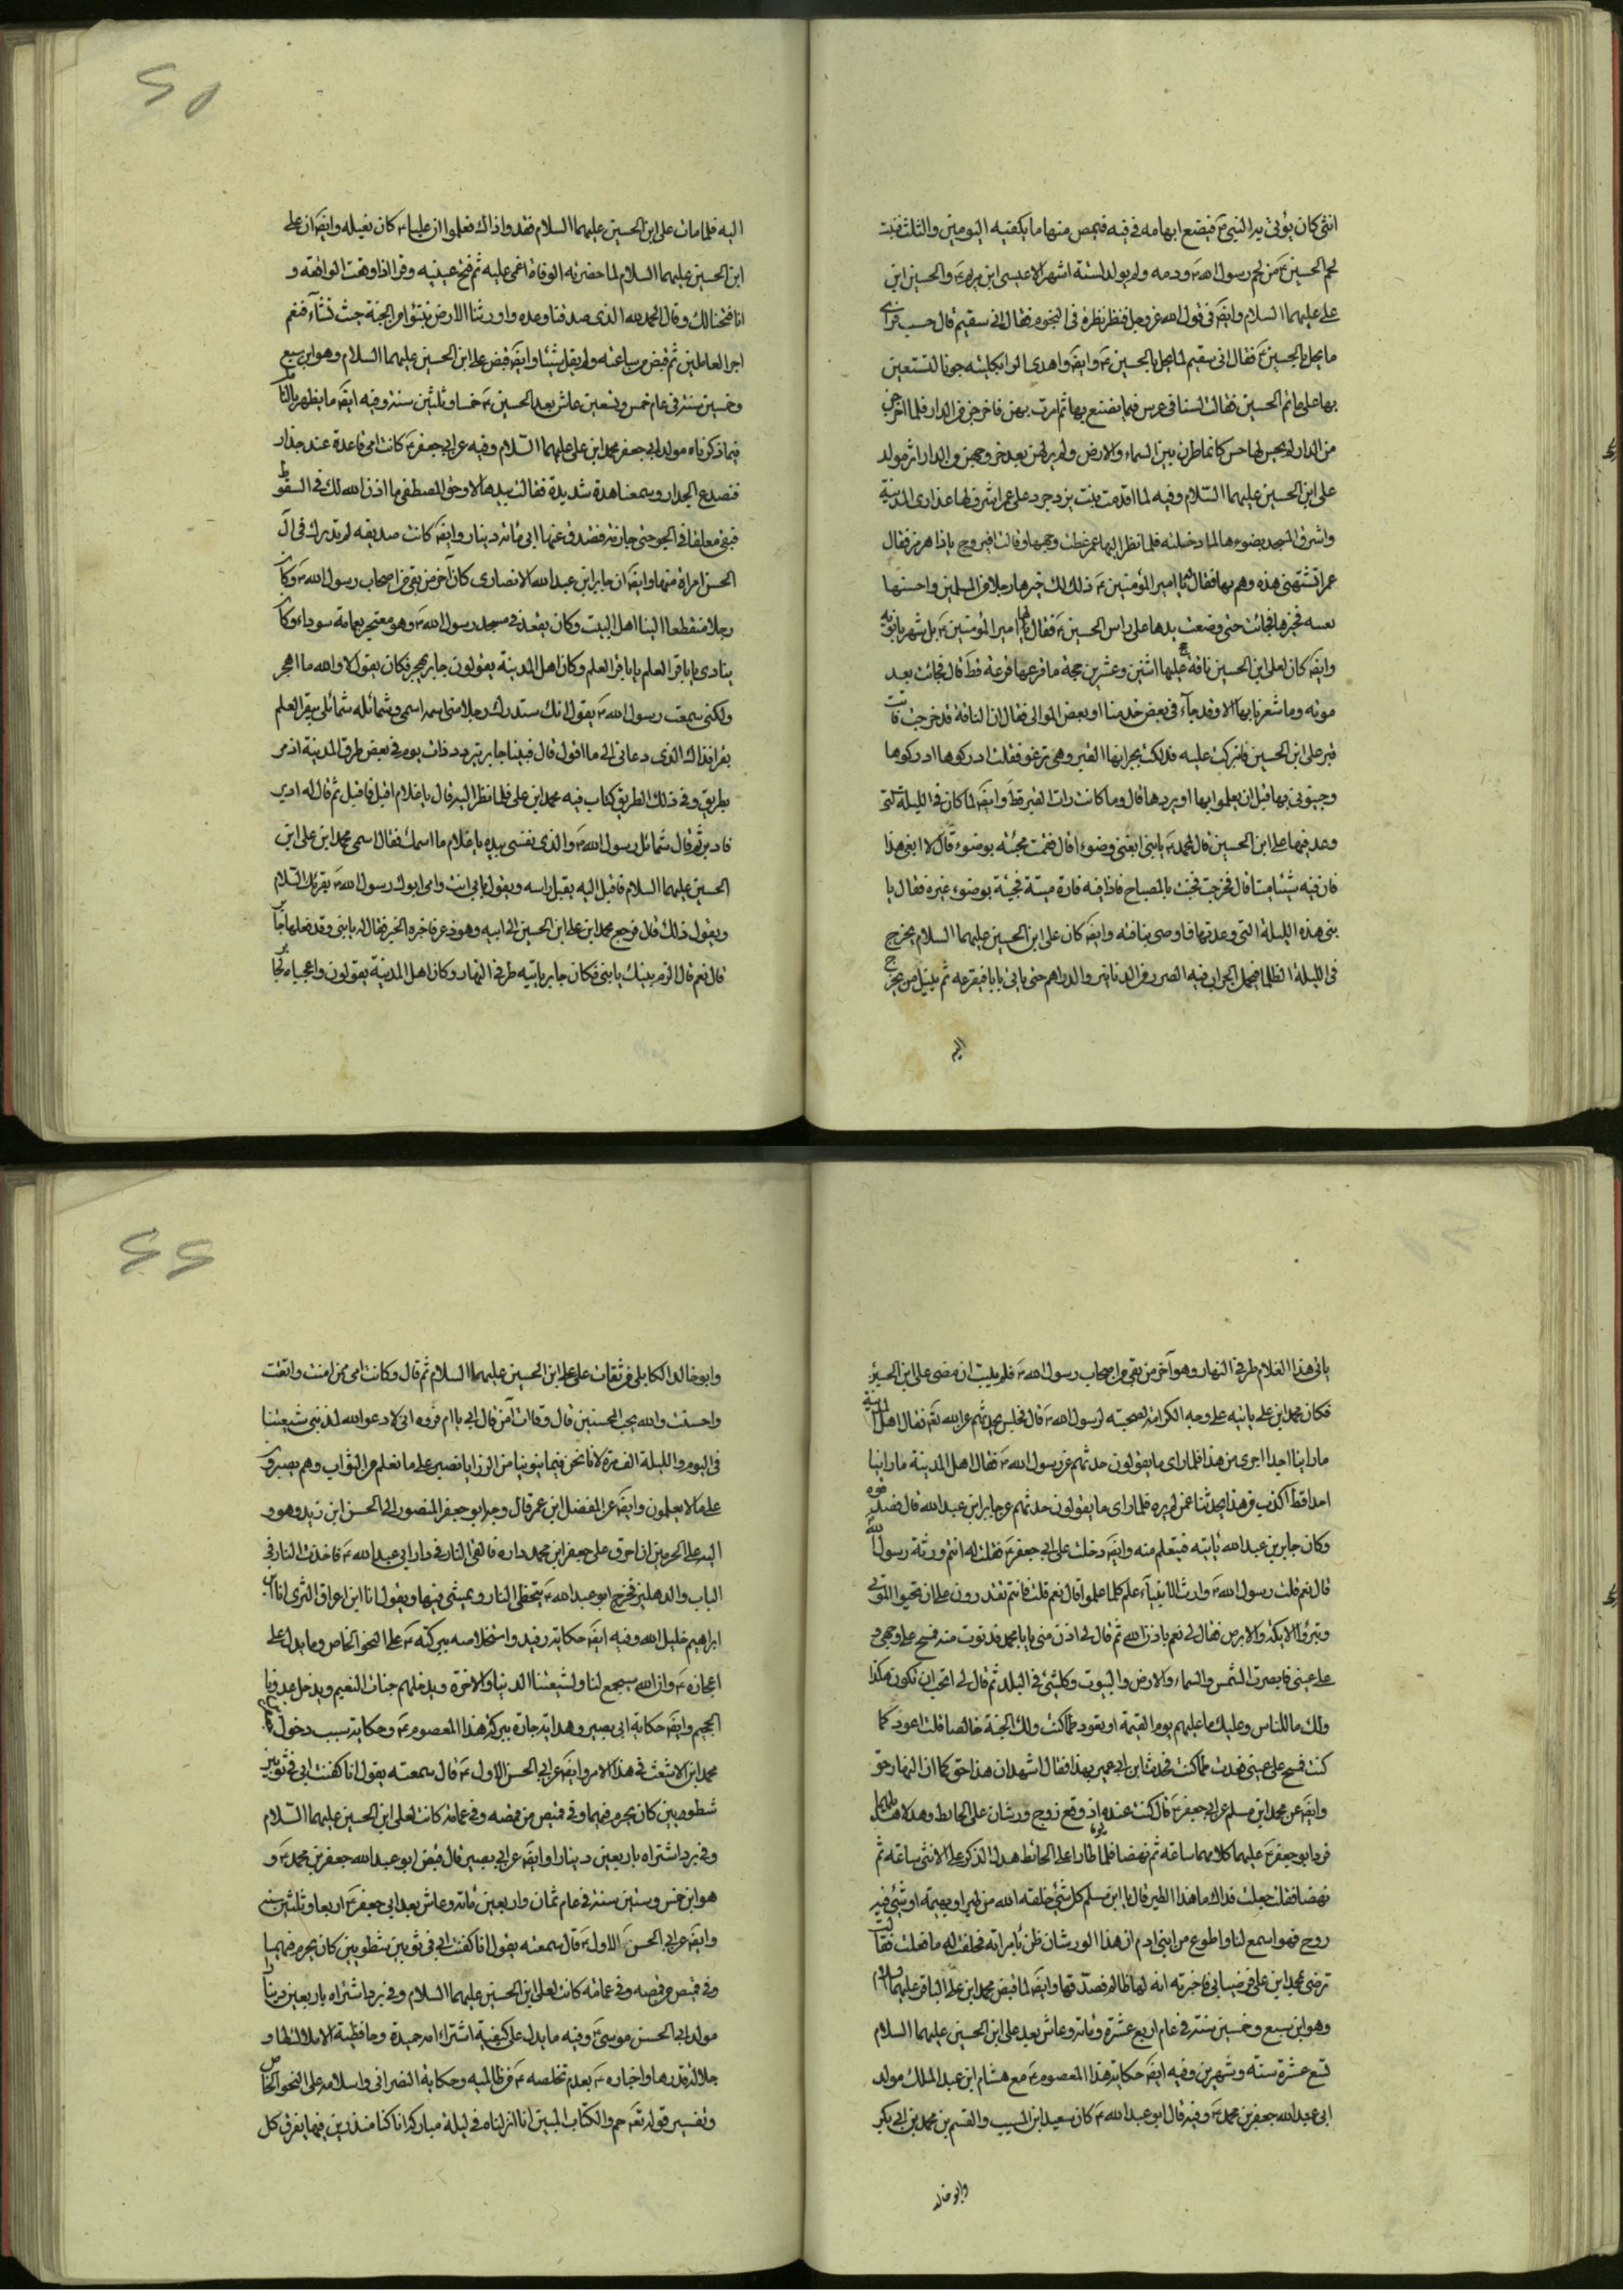 انثى كان يؤتى به النبي ص فيضع ابهامه في فيه فيمص منها ما يكفيه اليومين والثلث فنبت
لحم الحسين ع من لحم رسول الله ص ودمه ولم يولد لستة اشهر الا عيسى ابن مريم ع والحسين ابن
على عليهما السلام وايضَ في قول الله عز وجل فنظر نظرة في النجوم فقال اني سقيم قال حسب فراى
ما يحل بالحسين ع فقال اني سقيم لما يحل بالحسين ع وايضَ واهدى الى الكلبية جونا لتستعين
بها على ماتم الحسين فقالت لسنا في عرس فما نصنع بها ثم امرت بهن فاخرجن من الدار فلما اخرجن
من الدار لم يحس لها حس كانما طرن بين السماء والارض ولم ير لهن بعد خروجهن من الدار اثر مولد
على ابن الحسين عليهما السلام وفيه لما اقدمت بنت يزدجرد على عمر اشرف لها عذارى المدينة
واشرق المسجد بضوءها لما دخلته فلما نظر اليها عمر غطت وجهها وقالت اف بيروج بادا هرمز فقال
عمر اتشتمني هذه وهم بها فقال له امير المؤمنين ع ليس ذلك لك خيرها رجلا من المسلمين واحسبها
بفيئه فخيرها فجائت حتى وضعت يدها على راس الحسين ع فقال لها امير المؤمنين ع بل شهربانويه
وايضَ كان لعلى ابن الحسين ناقة حج عليها اثنين وعشرين حجة ما قرعها قرعة قط قال فجائت بعد
موته وما شعرنا بها الا وقد جآء في بعض خدمنا او بعض الموالى فقال ان الناقة قد خرجت فاتت
قبر على ابن الحسين فانبركت عليه فدلكت بجرانها القبر وهي ترغو فقلت ادركوها ادركوها
وجيئوني بها قبل ان يعلموا بها او يروها قال وما كانت رات القبر قط وايضَ لما كان في الليلة التي
وعد فيها على ابن الحسين قال لمحمد ع يا بني ابغني وضوءا قال فقمت فجئته بوضوء قال لا ابغي هذا
فان فيه شيئا ميتا قال فخرجت فجئت بالمصباح فاذا فيه فارة ميتة فجئته بوضوء غيره فقال يا
بني هذه الليلة التي وعدتها فاوصى بناقته وايضَ كان على ابن الحسين عليهما السلام يخرج
في الليلة الظلما فيحمل الجراب فيه الصرر من الدنانير والدراهم حتى ياتي بابا بابا فيقرعه ثم ينيل من يخرج
اليه
اليه فلما مات على ابن الحسين عليهما السلام فقدوا ذاك فعلموا ان عليا ع كان يفعله وايضَ ان على
ابن الحسين عليهما السلام لما حضرته الوفاة اغمى عليه ثم فتح عينيه وقرا اذا وقعت الواقعة و
انا فتحنا لك وقال الحمد لله الذى صدقنا وعده واورثنا الارض نتبوا من الجنة حيث نشآء فنعم
اجر العاملين ثم قبض من ساعته ولم يقل شيئا وايضَ قبض على ابن الحسين عليهما السلام وهو ابن سبع
وخمسين سنة في عام خمس وتسعين عاش بعد الحسين ع خمسا وثلثين سنة وفيه ايضَ ما يظهر بالتامل
فيما ذكرناه مولد ابي جعفر محمد ابن على عليهما السلام وفيه عن ابي جعفر ع كانت امي قاعدة عند جدار
فتصدع الجدار وسمعنا هدة شديدة فقالت بيدها لا وحق المصطفى ما اذن الله لك في السقوط
فبقي معلقا في الجو حتى جازته فتصدق عنها ابي بمائة دينار وايضَ كانت صديقة لم يدرك في آل
الحسن امراة مثلها وايضَ ان جابر ابن عبد الله الانصارى كان آخر من بقي من اصحاب رسول الله ص وكان
رجلا منقطعا الينا اهل البيت وكان يقعد في مسجد رسول الله ص وهو معتجر بعمامة سوداء وكان
ينادى يا باقر العلم يا باقر العلم وكان اهل المدينة يقولون جابر يهجر فكان يقول لا والله ما اهجر
ولكني سمعت رسول الله ص يقول انك ستدرك رجلا مني اسمه اسمي وشمائله شمائلي يبقر العلم
بقرا فذاك الذى دعاني الى ما اقول قال فبينا جابر يتردد ذات يوم في بعض طرق المدينة اذ مر
بطريق وفي ذلك الطريق كتاب فيه محمد ابن على فلما نظر اليه قال يا غلام اقبل فاقبل ثم قال له ادبر
فادبر ثم قال شمائل رسول الله ص والذى نفسي بيده يا غلام ما اسمك فقال اسمي محمد ابن على ابن
الحسين عليهما السلام فاقبل اليه يقبل راسه ويقول بابي انت وامي ابوك رسول الله ص يقرئك السلام
ويقول ذلك قال فرجع محمد ابن على ابن الحسين الى ابيه وهو ذعر فاخبره الخبر فقال له يا بني وقد فعلها جابر
قال نعم قال الزم بيتك يا بني فكان جابر ياتيه طرفي النهار وكان اهل المدينة يقولون واعجباه لجابر
ياتي هذا الغلام طرفي النهار وهو آخر من بقي من اصحاب رسول الله ص فلم يلبث ان مضى على ابن الحسين
فكان محمد ابن على ياتيه على وجه الكرامة لصحبته لرسول الله ص قال فجلس يحدثهم عن الله تعَ فقال اهل المدينة
ما راينا احدا اجرى من هذا فلما راى ما يقولون حدثهم عن رسول الله ص فقال اهل المدينة ما راينا
احدا قط اكذب من هذا يحدثنا عمن لم يره فلما راى ما يقولون حدثهم عن جابر ابن عبد الله قال فصدقوه
وكان جابر بن عبد الله ياتيه فيتعلم منه وايضَ دخلت على ابي جعفر ع فقلت له انتم ورثة رسول الله
قال نعم قلت رسول الله ص وارث الانبيآء علم كلما علموا قال نعم قلت فانتم تقدرون على ان تحيوا الموتى
وتبرؤا الاكمه والابرص فقال لي نعم باذن الله ثم قال لي ادن مني يا با محمد فدنوت منه فمسح على وجهي و
على عيني فابصرت الشمس والسماء والارض والبيوت وكل شئ في البلد ثم قال لي اتحب ان تكون هكذا
ولك ما للناس وعليك ما عليهم يوم القيمة او تعود كما كنت ولك الجنة خالصا قلت اعود كما
كنت فمسح على عيني فعدت كما كنت فحدثت ابن ابي عمير بهذا فقال اشهد ان هذا حق كما ان النهار حق
وايضَ عن محمد ابن مسلم عن ابي جعفر ع قال كنت عنده يوما اذ وقع زوج ورشان على الحائط وهدلا هديلهما
فرد ابو جعفر ع عليهما كلامهما ساعة ثم نهضا فلما طارا على الحائط هدل الذكر على الانثى ساعة ثم
نهضا فقلت جعلت فداك ما هذا الطير قال يا ابن مسلم كل شئ خلقه الله من طير او بهيمة او شئ فيه
روح فهو اسمع لنا واطوع من ابني ادم ان هذا الورشان ظن بامراته فحلفت له ما فعلت فقالت
ترضى بمحمد ابن على فرضيا بي فاخبرته انه لها ظالم فصدقها وايضَ لما قبض محمد ابن على الباقر عليهما السلام
وهو ابن سبع وخمسين سنة في عام اربع عشرة ومائة وعاش بعد على ابن الحسين عليهما السلام
تسع عشرة سنة وشهرين وفيه ايضَ حكاية هذا المعصوم ع مع هشام ابن عبد الملك مولد
ابي عبد الله جعفر بن محمد ع وفيه قال ابو عبد الله ع كان سعيد ابن المسيب والقسم بن محمد بن ابي بكر
وابو خالد
وابو خالد الكابلي من ثقات على ابن الحسين عليهما السلام ثم قال وكانت امي ممن امنت واتقت
واحسنت والله يحب المحسنين قال وقالت امي قال ابي يا ام فروه اني لادعو الله لمذنبي شيعتنا
في اليوم والليلة الف مرة لانا نحن فيما ينوبنا من الرزايا نصبر على ما نعلم من الثواب وهم يصبرون
على ما لا يعلمون وايضَ عن المفضل ابن عمر قال وجه ابو جعفر المنصور الى الحسن ابن زيد وهو و
اليه على الحرمين ان احرق على جعفر ابن محمد داره فالقى النار في دار ابي عبد الله ع فاخذت النار في
الباب والدهليز فخرج ابو عبد الله ع يتخطى النار ويمشي فيها ويقول انا ابن اعراق الثرى انا ابن
ابراهيم خليل الله وفيه ايضَ حكاية رفيد واستخلاصه ببركته ع على النحو الخاص وما يدل على
اعجازه ع وان الله سيجمع لنا ولشيعتنا الدنيا والاخرة ويدخلهم جنات النعيم ويدخل عدونا
الجحيم وايضَ حكاية ابي بصير وهداية جاره ببركة هذا المعصوم ع وحكاية سبب دخول
محمد ابن الاشعث في هذا الامر وايضَ عن ابي الحسن الاول ع قال سمعته يقول انا كفنت ابي في ثوبين
شطويين كان يحرم فيهما وفي قميص من قمصه وفي عمامة كانت لعلى ابن الحسين عليهما السلام
وفي برد اشتراه باربعين دينارا وايضَ عن ابي بصير قال قبض ابو عبد الله جعفر بن محمد ع و
هو ابن خمس وستين سنة في عام ثمان واربعين ومائة وعاش بعد ابي جعفر ع اربعا وثلثين سنة
وايضَ عن ابي الحسن الاول ع قال سمعته يقول انا كفنت ابي في ثوبين شطويين كان يحرم فيهما
وفي قميص من قمصه وفي عمامة كانت لعلى ابن الحسين عليهما السلام وفي برد اشتراه باربعين دينارا
مولد ابي الحسن موسى ع وفيه ما يدل على كيفية اشتراء امه حميدة وحافظية الاملاك لها و
جلالة قدرها واخباره ع بعدم تخلصه ع من ظالميه وحكاية النصراني واسلامه على النحو الخاص
وتفسير قوله تعَ حم والكتاب المبين انا انزلناه في ليلة مباركة انا كنا منذرين فيها يفرق كل